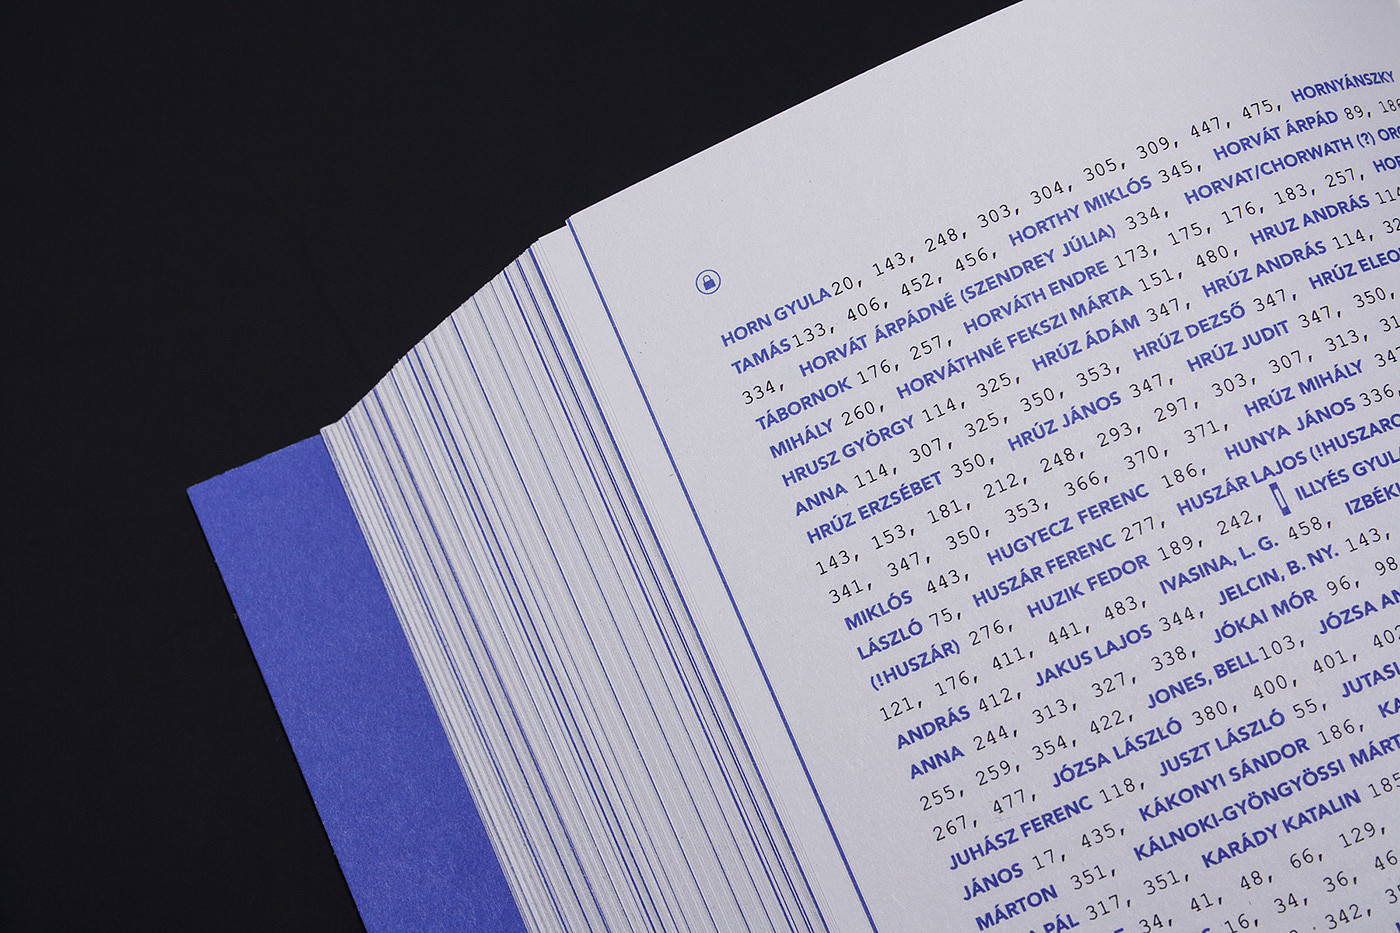 HORN GYULA 20, 143, 248, 303, 304, 305, 309, 447, 475, HORNYÁNSZKY
TAMÁS 133, 406, 452, 456, HORTHY MIKLÓS 345, HORVÁT ÁRPÁD 89,
334, HORVÁT ÁRPÁDNÉ (SZENDREY JÚLIA) 334, HORVAT/CHORWATH (?)
TÁBORNOK 176, 257, HORVÁTH ENDRE 173, 175, 176, 183, 257,
MIHÁLY 260, HORVÁTHNÉ FEKSZI MÁRTA 151, 480, HRUZ ANDRÁS 114
HRUSZ GYÖRGY 114, 325, HRÚZ ÁDÁM 347, HRÚZ ANDRÁS 114,
ANNA 114, 307, 325, 350, 353, HRÚZ DEZSŐ 347, HRÚZ
HRÚZ ERZSÉBET 350, HRÚZ JÁNOS 347, HRÚZ JUDIT 347, 350,
143, 153, 181, 212, 248, 293, 297, 303, 307, 313,
341, 347, 350, 353, 366, 370, 371, HRÚZ MIHÁLY 347
MIKLÓS 443, HUGYECZ FERENC 186, HUNYA JÁNOS 336,
LÁSZLÓ 75, HUSZÁR FERENC 277, HUSZÁR LAJOS
(!HUSZÁR) 276, HUZIK FEDOR 189, 242, I ILLYÉS
121, 176, 411, 441, 483, IVASINA, L. G. 458,
ANDRÁS 412, JAKUS LAJOS 344, JELCIN, B. NY. 143,
ANNA 244, 313, 327, 338, JÓKAI MÓR 96, 98
255, 259, 354, 422, JONES, BELL 103, JÓZSA
267, 477, JÓZSA LÁSZLÓ 380, 400, 401,
JUHÁSZ FERENC 118, JUSZT LÁSZLÓ 55,
JÁNOS 17, 435, KÁKONYI SÁNDOR 186,
MÁRTON 351, KÁLNOKI-GYÖNGYÖSSI
PÁL 317, 351, KARÁDY KATALIN 185
34, 41, 48, 66, 129,
16, 34, 36, 46
342,